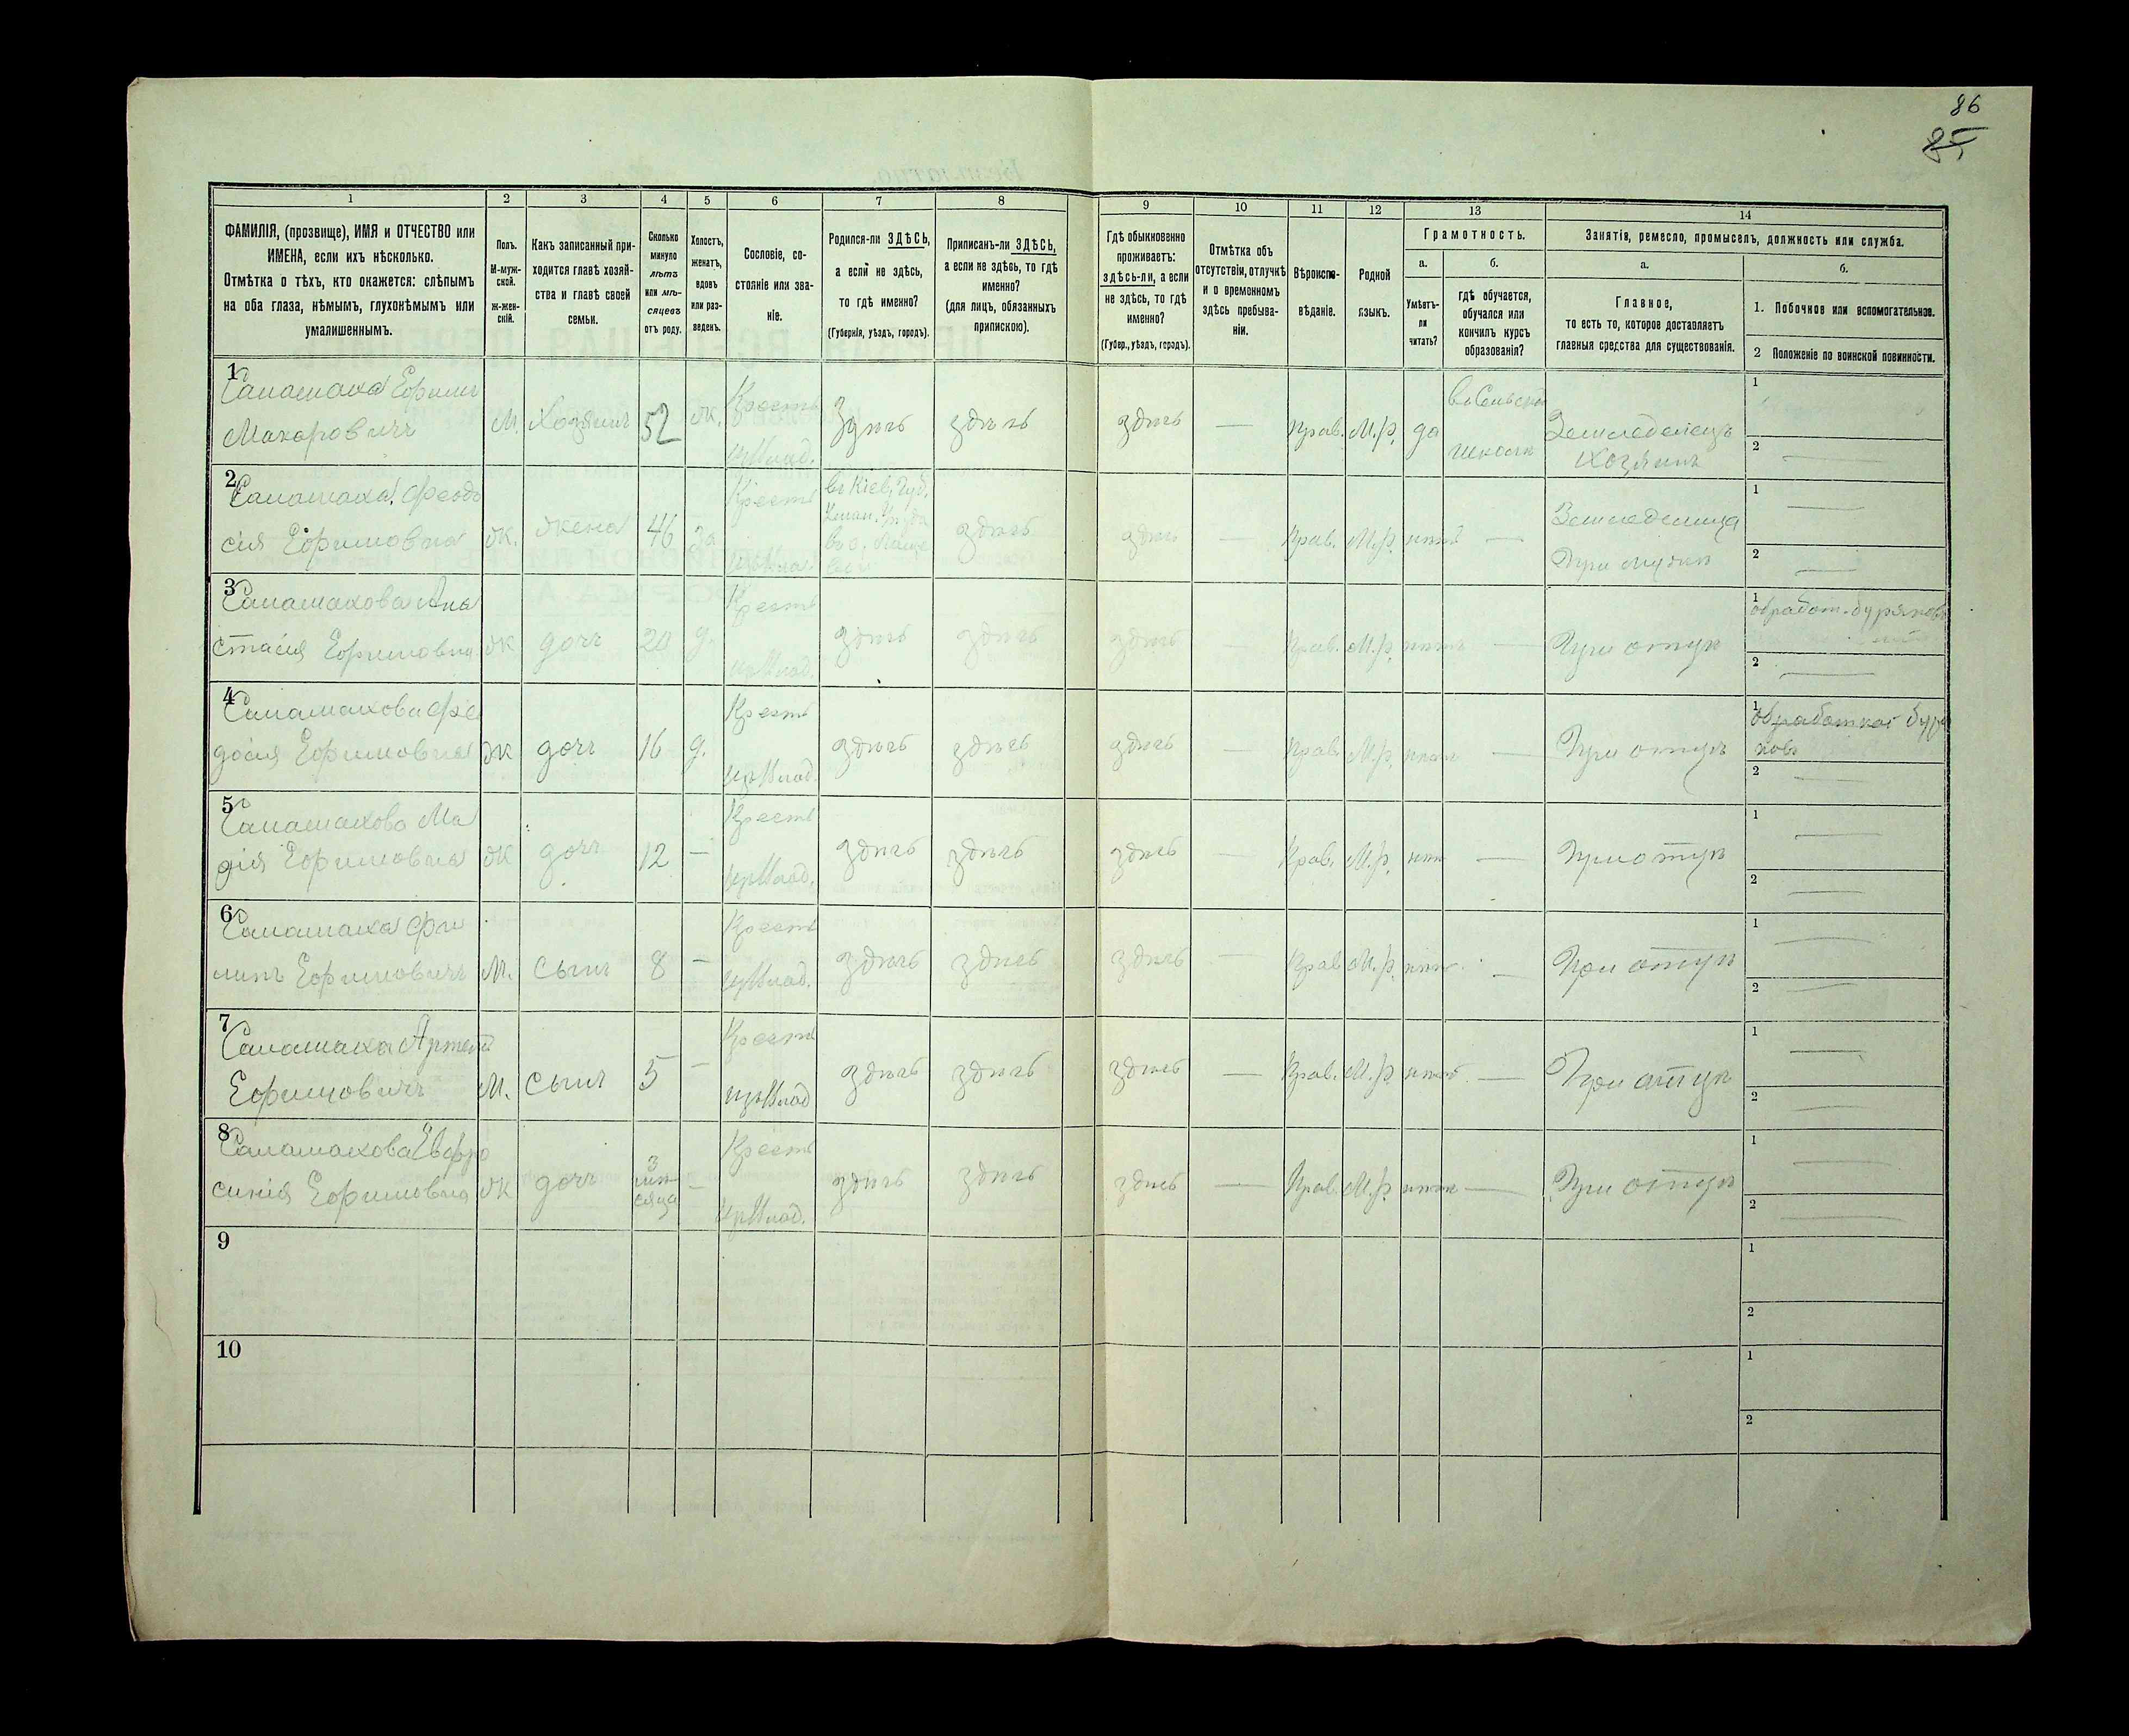 86
85
1
2
3
4
5
6
7
8
9
10
11
12
13
14
ФАМИЛІЯ, (прозвище), ИМЯ и ОТЧЕСТВО или
ИМЕНА, если ихъ нѣсколько.
Отмѣтка о тѣхъ, кто окажется: слѣпымъ
на оба глаза, нѣмымъ, глухонѣмымъ или
умалишеннымъ.
Полъ.
М-муж-
ской.
ж-жен-
скій.
Какъ записанный при-
ходится главѣ хозяй-
ства и главѣ своей
семьи.
Сколько
минуло
лѣтъ
или мѣ-
сяцевъ
отъ роду.
Холостъ,
женатъ,
вдовъ
или раз-
веденъ.
Сословіе, со-
стояніе или зва-
ніе.
Родился-ли ЗДѢСЬ,
а если не здѣсь,
то гдѣ именно?
(Губернія, уѣздъ, городъ).
Приписанъ-ли ЗДѢСЬ,
а если не здѣсь, то гдѣ
именно?
(для лицъ, обязанныхъ
припискою).
Гдѣ обыкновенно
проживаетъ:
здѣсь-ли, а если
не здѣсь, то гдѣ
именно?
(Губер., уѣздъ, городъ).
Отмѣтка объ
отсутствіи, отлучкѣ
и о временномъ
здѣсь пребыва-
ніи.
Вѣроиспо-
вѣданіе.
Родной
языкъ.
Грамотность.
а.
Умѣетъ-
ли
читать?
б.
гдѣ обучается,
обучался или
кончилъ курсъ
образованія?
Занятія, ремесло, промыселъ, должность или служба.
а.
Главное,
то есть то, которое доставляетъ
главныя средства для существованія.
б.
1. Побочное или вспомогательное.
2 Положеніе по воинской повинности.
1
Саламаха Ефимъ
Макаровичъ
М. Хозяинъ 52 Ж. Крестъ
Здѣсь здѣсь здѣсь — Прав. М.р. да
школѣ
Земледелецъ
Хозяинъ
1
2 —
2
Саламаха Феодо
сія Ефимовна
Ж. жена 46 за Крестъ
въ Кіев. Губ.
здѣсь здѣсь — Прав. М.р. нѣтъ —
Земледелица
При мужѣ
1 —
2 —
3
Саламахова Ана
стасія Ефимовна
Ж дочь 20 д. Крестъ
здѣсь здѣсь здѣсь — Прав. М.р. нѣтъ —
При отцѣ
1 обработ. буряковъ
2 —
4
Саламахова Фео
досія Ефимовна
Ж дочь 16 д. Крестъ
здѣсь здѣсь здѣсь — Прав. М.р. нѣтъ —
При отцѣ
1 обработкой буря
ковъ
2 —
5
Саламахова Ма
рія Ефимовна
Ж дочь 12 — Крестъ
здѣсь здѣсь здѣсь — Прав. М.р. нѣтъ —
При отцѣ
1 —
2 —
6
Саламаха Фи
липъ Ефимовичъ
М. Сынъ 8 — Крестъ
здѣсь здѣсь здѣсь — Прав М.р. нѣтъ —
При отцѣ
1 —
2 —
7
Саламаха Артемъ
Ефимовичъ
М. Сынъ 5 — Крестъ
здѣсь здѣсь здѣсь — Прав. М.р. нѣтъ —
При отцѣ
1 —
2 —
8
Саламахова Евфро
синія Ефимовна
Ж дочь 3
мѣ
сяца
— Крестъ
здѣсь здѣсь здѣсь — Прав. М.р. нѣтъ —
При отцѣ
1 —
2 —
9
1
2
10
1
2